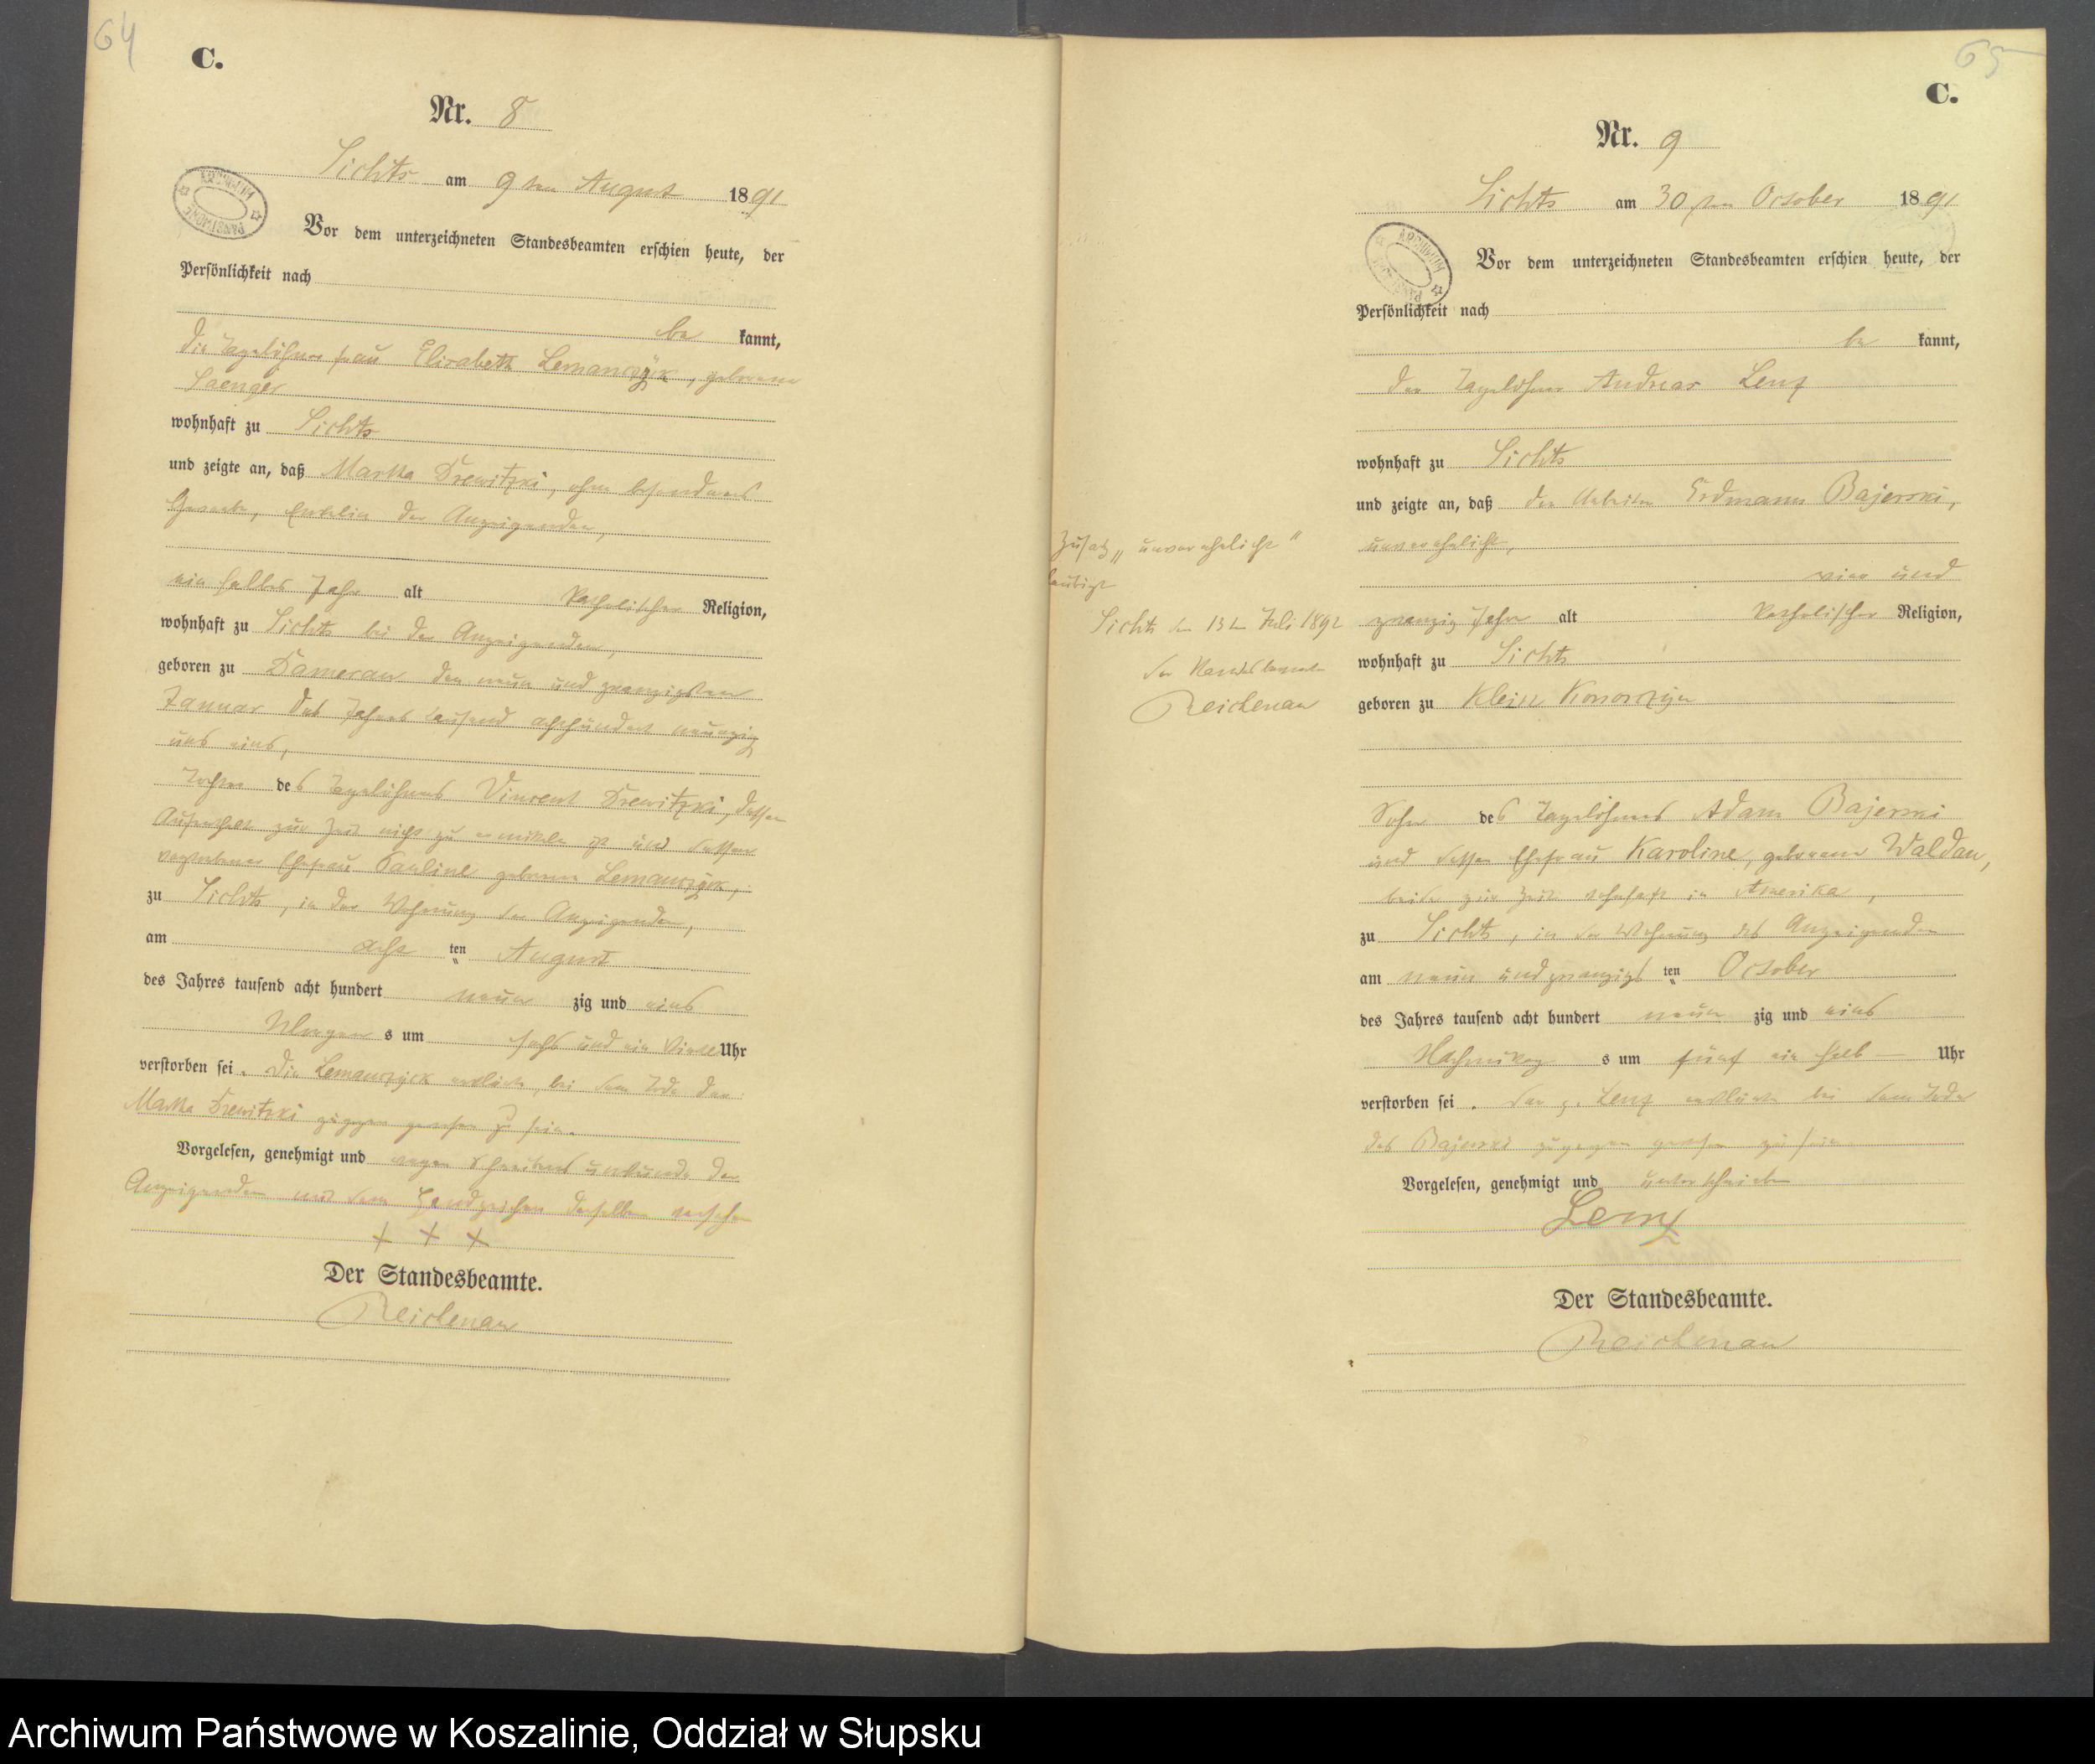 64
C.
Nr. 8
Lichts am 9ten August 1891
Vor dem unterzeichneten Standesbeamten erschien heute, der
Persönlichkeit nach
be kannt,
die Tagelöhnerfrau Elisabeth Lemanczyk, geborene
Saenger
wohnhaft zu Sichts
und zeigte an, daß Martha Drewitzki, ohne besonderes
Gewerbe, Enkelin der Anzeigenden,
ein halbes Jahr alt katholischer Religion,
wohnhaft zu Sichts bei der Anzeigenden,
geboren zu Damerau den neun und zwanzigsten
Januar des Jahres tausend achthundert neunzig
und eins,
Tochter des Tagelöhners Vincent Drewitzki, dessen
Aufenthalt zur Zeit nicht zu ermitteln ist und dessen
verstorbener Ehefrau Pauline geborene Lemanczyk,
zu Sichts, in der Wohnung der Anzeigenden,
am acht ten August
des Jahres tausend acht hundert neun zig und eins
Morgen s um sechs und ein Viertel Uhr
verstorben sei. Die Lemanczyck erklärte, bei dem Tode der
Martha Drewitzki zugegen gewesen zu sein.
Vorgelesen, genehmigt und wegen Schreibensunkunde der
Anzeigenden mit dem Handzeichen derselben versehen
+ + +
Der Standesbeamte.
Reichenau
65
C.
Nr. 9
Sichts am 30ten October 1891
Vor dem unterzeichneten Standesbeamten erschien heute, der
Persönlichkeit nach
be kannt,
der Tagelöhner Andreas Lenz
wohnhaft zu Sichts
und zeigte an, daß der Arbeiter Erdmann Bajerski,
unverehelicht,
vier und
zwanzig Jahre alt katholischer Religion,
wohnhaft zu Sichts
geboren zu Klein Konorczyn
Sohn des Tagelöhners Adam Bajerski
und dessen Ehefrau Karoline, geborene Waldau,
beide zur Zeit wohnhaft in Amerika,
zu Sichts, in der Wohnung des Anzeigenden
am neun und zwanzigs ten October
des Jahres tausend acht hundert neun zig und eins
Nachmittag s um fünf ein halb Uhr
verstorben sei. Der p. Lenz erklärte bei dem Tode
des Bajerski zugegen gewesen zu sein
Vorgelesen, genehmigt und unterschrieben
Lenz
Der Standesbeamte.
Reichenau
Zusatz „unverehelicht“
Sichts den 13ten Juli 1892
Der Standesbeamte
Reichenau
ARCHIWUM PAŃSTWOWE
Archiwum Państwowe w Koszalinie, Oddział w Słupsku